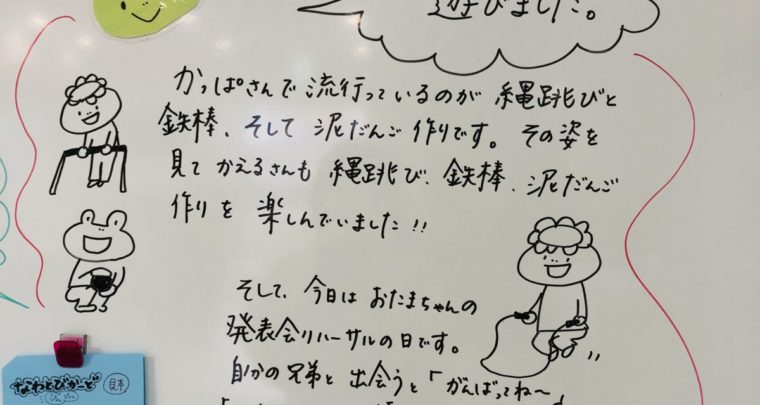 遊びました。
かっぱさんで流行っているのが縄跳びと
鉄棒、そして泥だんご作りです。その姿を
見てかえるさんも縄跳び、鉄棒、泥だんご
作りを楽しんでいました!!
そして、今日はおたまちゃんの
発表会リハーサルの日です。
自分の兄弟と出会うと「がんばってね〜
なわとびかーど
見本